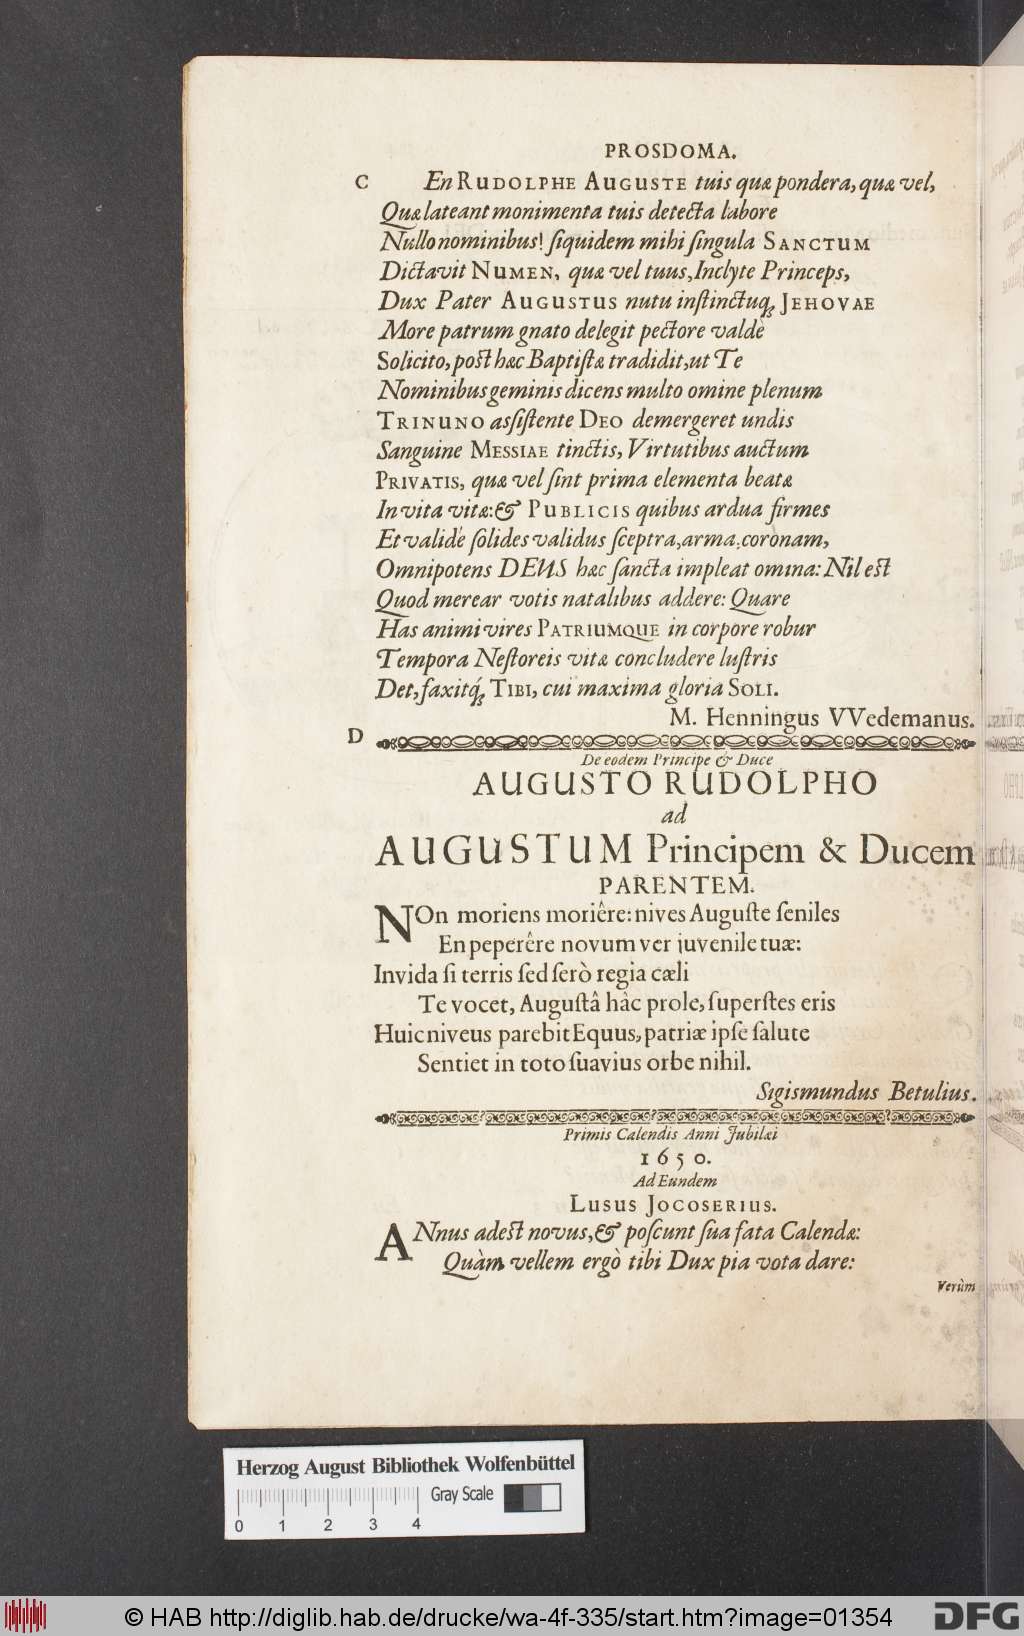 PROSDOMA.
C En RUDOLPHE AUGUSTE tuis quæ pondera, quæ vel,
Quæ lateant monimenta tuis detecta labore
Nullo nominibus! ſiquidem mihi ſingula SANCTUM
Dictavit NUMEN, quæ vel tuus, Inclyte Princeps,
Dux Pater AUGUSTUS nutu inſtinctuq́; JEHOVAE
More patrum gnato delegit pectore valdè
Solicito, poſt hæc Baptiſtæ tradidit, ut Te
Nominibus geminis dicens multo omine plenum
TRINUNO asſiſtente DEO demergeret undis
Sanguine MESSIAE tinctis, Virtutibus auctum
PRIVATIS, quæ vel ſint prima elementa beatæ
In vita vitæ: & PUBLICIS quibus ardua firmes
Et validè ſolides validus ſceptra, arma, coronam,
Omnipotens DEUS hæc ſancta impleat omina: Nil eſt
Quod merear votis natalibus addere: Quare
Has animi vires PATRIUMQUE in corpore robur
Tempora Neſtoreis vitæ concludere luſtris
Det, faxitq́; TIBI, cui maxima gloria SOLI.
M. Henningus VVedemanus.
D
De eodem Principe & Duce
AUGUSTO RUDOLPHO
ad
AUGUSTUM Principem & Ducem
PARENTEM.
NOn moriens moriêre: nives Auguſte ſeniles
En peperêre novum ver juvenile tuæ:
Invida ſi terris ſed ſerò regia cæli
Te vocet, Auguſtâ hâc prole, ſuperſtes eris
Huic niveus parebit Equus, patriæ ipſe ſalute
Sentiet in toto ſuavius orbe nihil.
Sigismundus Betulius.
Primis Calendis Anni Jubilæi
1650.
Ad Eundem
LUSUS JOCOSERIUS.
ANnus adeſt novus, & poſcunt ſua fata Calendæ:
Quàm vellem ergò tibi Dux pia vota dare:
Verùm
Herzog August Bibliothek Wolfenbüttel
Gray Scale
0 1 2 3 4
© HAB http://diglib.hab.de/drucke/wa-4f-335/start.htm?image=01354
DFG